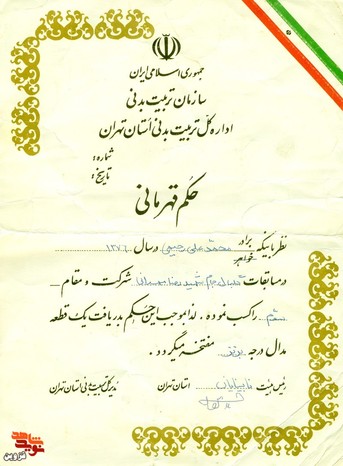 جمهوری اسلامی ایران
سازمان تربیت بدنی
اداره کل تربیت بدنی استان تهران
شماره:
تاریخ:
حکم قهرمانی
نظر باینکه برادر محمد علی رحیمی در سال ۱۳۷۶
خواهر
در مسابقات جام شهید رضا شرکت و مقام
سوم را کسب نموده . لذا بموجب این حکم بدریافت یک قطعه
مدال درجه برنز مفتخر میگردد .
رئیس هیئت نابینایان استان تهران
مدیر کل تربیت بدنی استان تهران
شاهد
نوید
قزوین